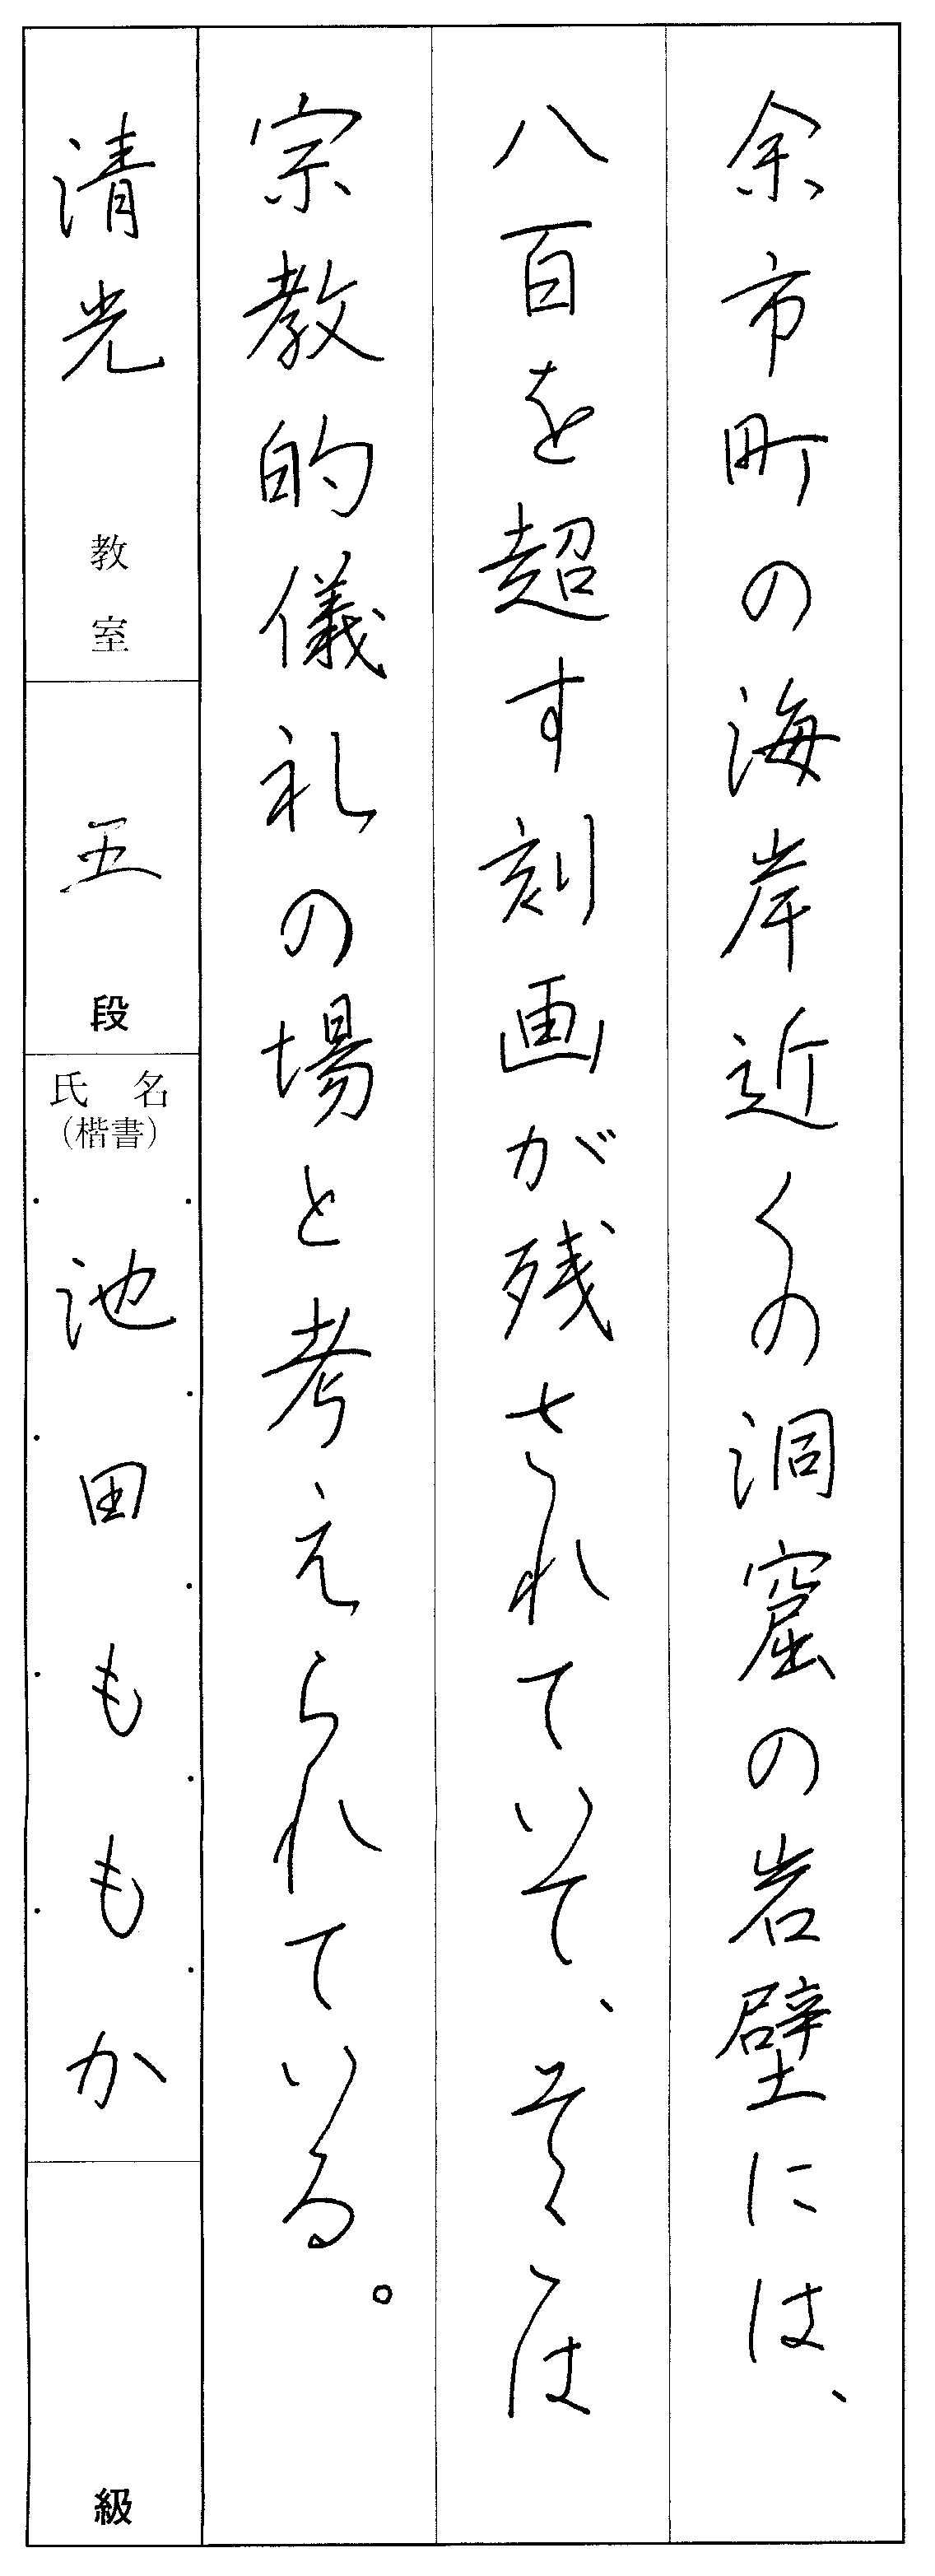 余市町の海岸近くの洞窟の岩壁には、
八百を超す刻画が残されていて、そこは
宗教的儀礼の場と考えられている。
清光 教室
五 段
氏名
(楷書)
池田ももか
級